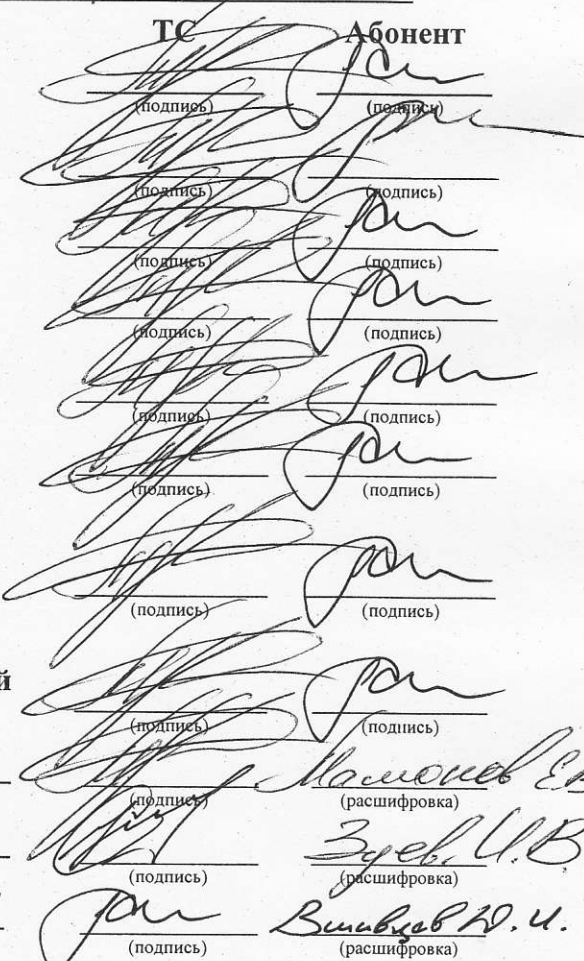 ТС Абонент
(подпись) (подпись)
(подпись) (подпись)
(подпись) (подпись)
(подпись) (подпись)
(подпись) (подпись)
(подпись) (подпись)
(подпись) (подпись)
й
(подпись) (подпись)
Мамонов Е.
(подпись) (расшифровка)
Зуев. И. В
(подпись) (расшифровка)
Ю. И.
(подпись) (расшифровка)